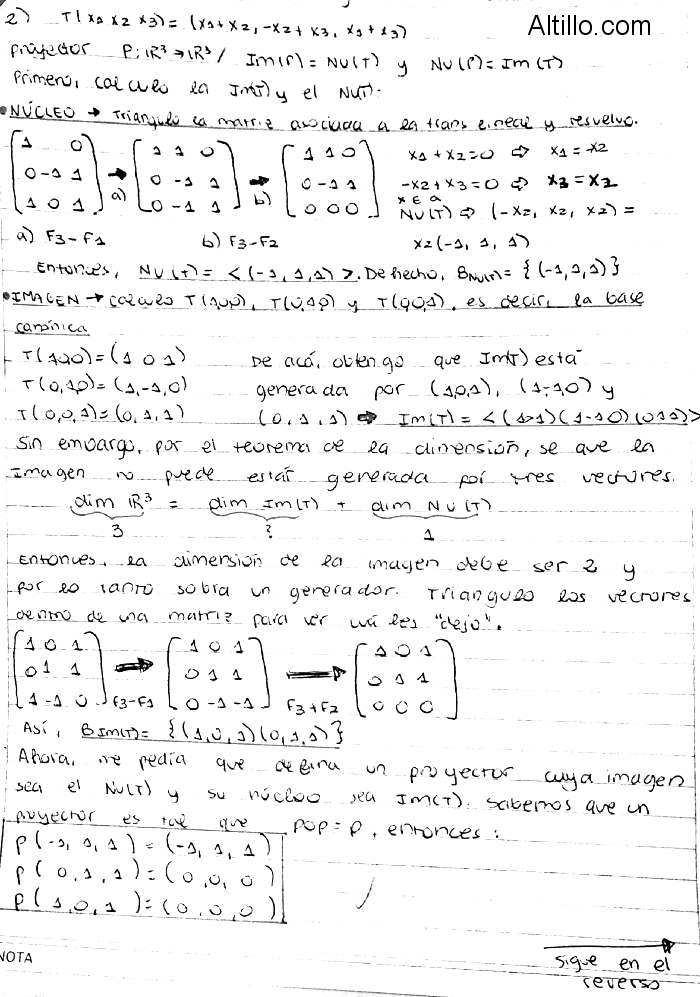 Altillo.com
2) T(x1 x2 x3) = (x1+x2, -x2+x3, x1+x3)
proyector P: ℝ³→ℝ³ / Im(P) = NU(T) y NU(P) = Im(T)
Primero, calculo la Im(T) y el NU(T).
• NÚCLEO → Triangulo la matriz asociada a la trans lineal y resuelvo.
[1 0 / 0 -1 1 / 1 0 1] → a) [1 1 0 / 0 -1 1 / 0 -1 1] → b) [1 1 0 / 0 -1 1 / 0 0 0] x1+x2=0 ⇒ x1=-x2
-x2+x3=0 ⇒ x3=x2
x ∈ a
NU(T) ⇒ (-x2, x2, x2) =
a) F3-F1 b) F3-F2 x2(-1, 1, 1)
Entonces, NU(T) = <(-1,1,1)>. De hecho, BNU(T) = {(-1,1,1)}
• IMAGEN → calculo T(1,0,0), T(0,1,0) y T(0,0,1), es decir, la base
canónica
T(1,0,0)=(1 0 1) De acá, obtengo que Im(T) está
T(0,1,0)=(1,-1,0) generada por (1,0,1), (1,-1,0) y
T(0,0,1)=(0,1,1) (0,1,1) ⇒ Im(T) = <(101)(1-10)(011)>
Sin embargo, por el teorema de la dimensión, se que la
Imagen no puede estar generada por tres vectores.
dim ℝ³ = dim Im(T) + dim NU(T)
3 ? 1
Entonces, la dimensión de la imagen debe ser 2 y
por lo tanto sobra un generador. Triangulo los vectores
dentro de una matriz para ver cuáles "dejo".
[1 0 1 / 0 1 1 / 1 -1 0] F3-F1 → [1 0 1 / 0 1 1 / 0 -1 -1] F3+F2 → [1 0 1 / 0 1 1 / 0 0 0]
Así, BIm(T) = {(1,0,1)(0,1,1)}
Ahora, me pedía que defina un proyector cuya imagen
sea el NU(T) y su núcleo sea Im(T). Sabemos que un
proyector es tal que POP=P, entonces:
P(-1,1,1)=(-1,1,1)
P(0,1,1)=(0,0,0)
P(1,0,1)=(0,0,0)
NOTA
sigue en el
reverso